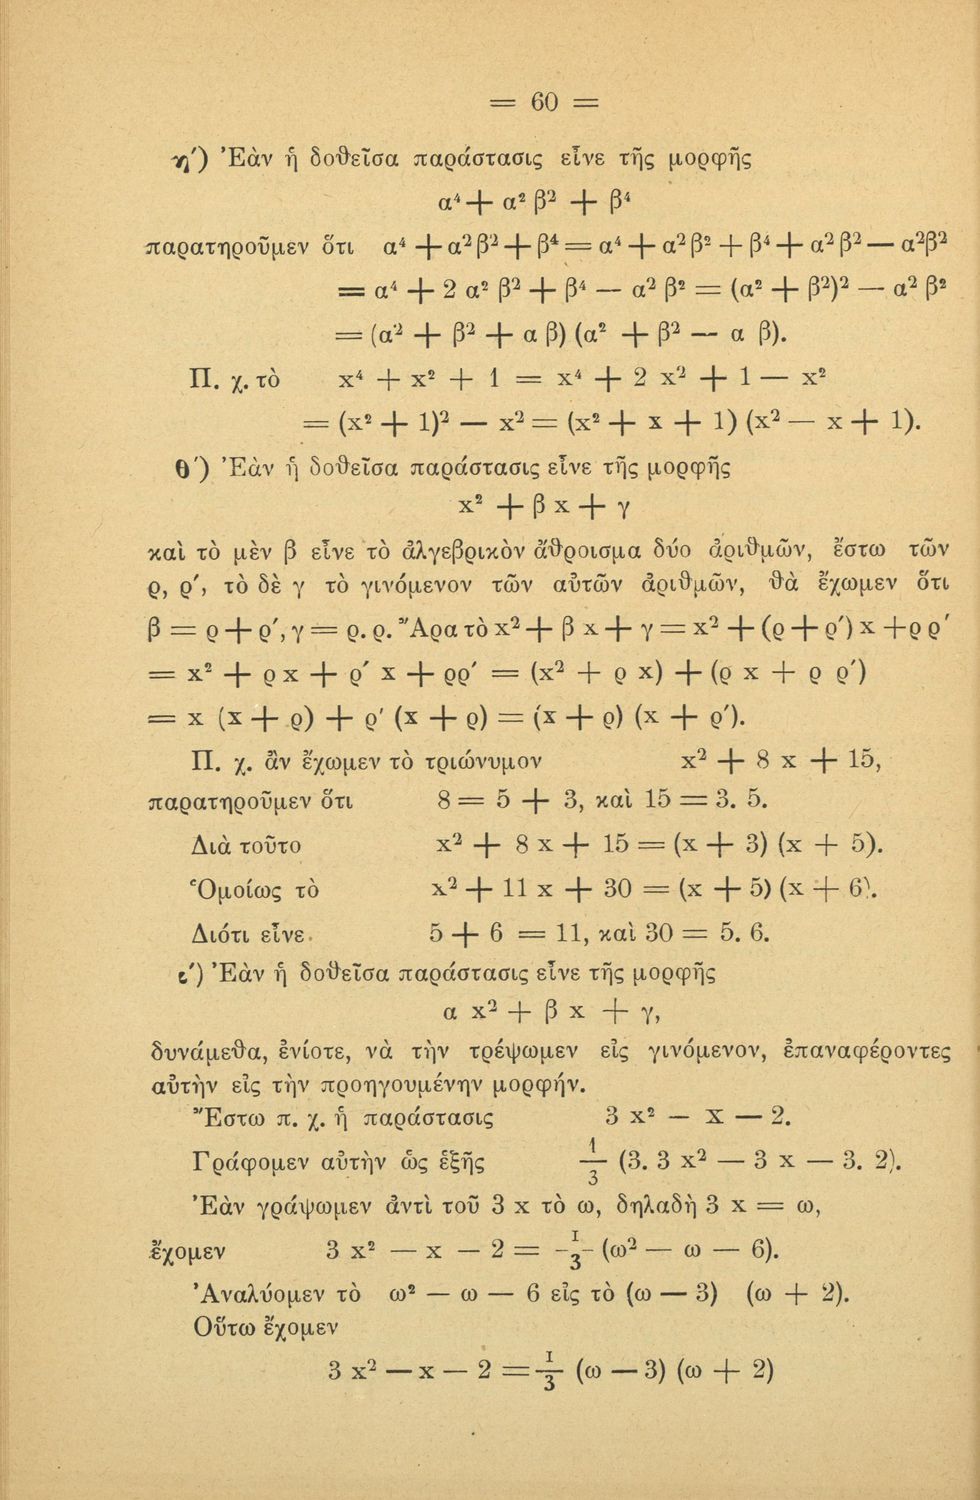 = 60 =
η′) Ἐὰν ἡ δοθεῖσα παράστασις εἶνε τῆς μορφῆς
α⁴ + α² β² + β⁴
παρατηροῦμεν ὅτι α⁴ + α² β² + β⁴ = α⁴ + α² β² + β⁴ + α² β² — α² β²
= α⁴ + 2 α² β² + β⁴ — α² β² = (α² + β²)² — α² β²
= (α² + β² + α β) (α² + β² — α β).
Π. χ. τὸ x⁴ + x² + 1 = x⁴ + 2 x² + 1 — x²
= (x² + 1)² — x² = (x² + x + 1) (x² — x + 1).
θ′) Ἐὰν ἡ δοθεῖσα παράστασις εἶνε τῆς μορφῆς
x² + β x + γ
καὶ τὸ μὲν β εἶνε τὸ ἀλγεβρικὸν ἄθροισμα δύο ἀριθμῶν, ἔστω τῶν
ρ, ρ′, τὸ δὲ γ τὸ γινόμενον τῶν αὐτῶν ἀριθμῶν, θὰ ἔχωμεν ὅτι
β = ρ + ρ′, γ = ρ. ρ. Ἄρα τὸ x² + β x + γ = x² + (ρ + ρ′) x + ρ ρ′
= x² + ρ x + ρ′ x + ρρ′ = (x² + ρ x) + (ρ x + ρ ρ′)
= x (x + ρ) + ρ′ (x + ρ) = (x + ρ) (x + ρ′).
Π. χ. ἂν ἔχωμεν τὸ τριώνυμον x² + 8 x + 15,
παρατηροῦμεν ὅτι 8 = 5 + 3, καὶ 15 = 3. 5.
Διὰ τοῦτο x² + 8 x + 15 = (x + 3) (x + 5).
Ὁμοίως τὸ x² + 11 x + 30 = (x + 5) (x + 6).
Διότι εἶνε 5 + 6 = 11, καὶ 30 = 5. 6.
ι′) Ἐὰν ἡ δοθεῖσα παράστασις εἶνε τῆς μορφῆς
α x² + β x + γ,
δυνάμεθα, ἐνίοτε, νὰ τὴν τρέψωμεν εἰς γινόμενον, ἐπαναφέροντες
αὐτὴν εἰς τὴν προηγουμένην μορφήν.
Ἔστω π. χ. ἡ παράστασις 3 x² — x — 2.
Γράφομεν αὐτὴν ὡς ἑξῆς 1/3 (3. 3 x² — 3 x — 3. 2).
Ἐὰν γράψωμεν ἀντὶ τοῦ 3 x τὸ ω, δηλαδὴ 3 x = ω,
ἔχομεν 3 x² — x — 2 = 1/3 (ω² — ω — 6).
Ἀναλύομεν τὸ ω² — ω — 6 εἰς τὸ (ω — 3) (ω + 2).
Οὕτω ἔχομεν
3 x² — x — 2 = 1/3 (ω — 3) (ω + 2)